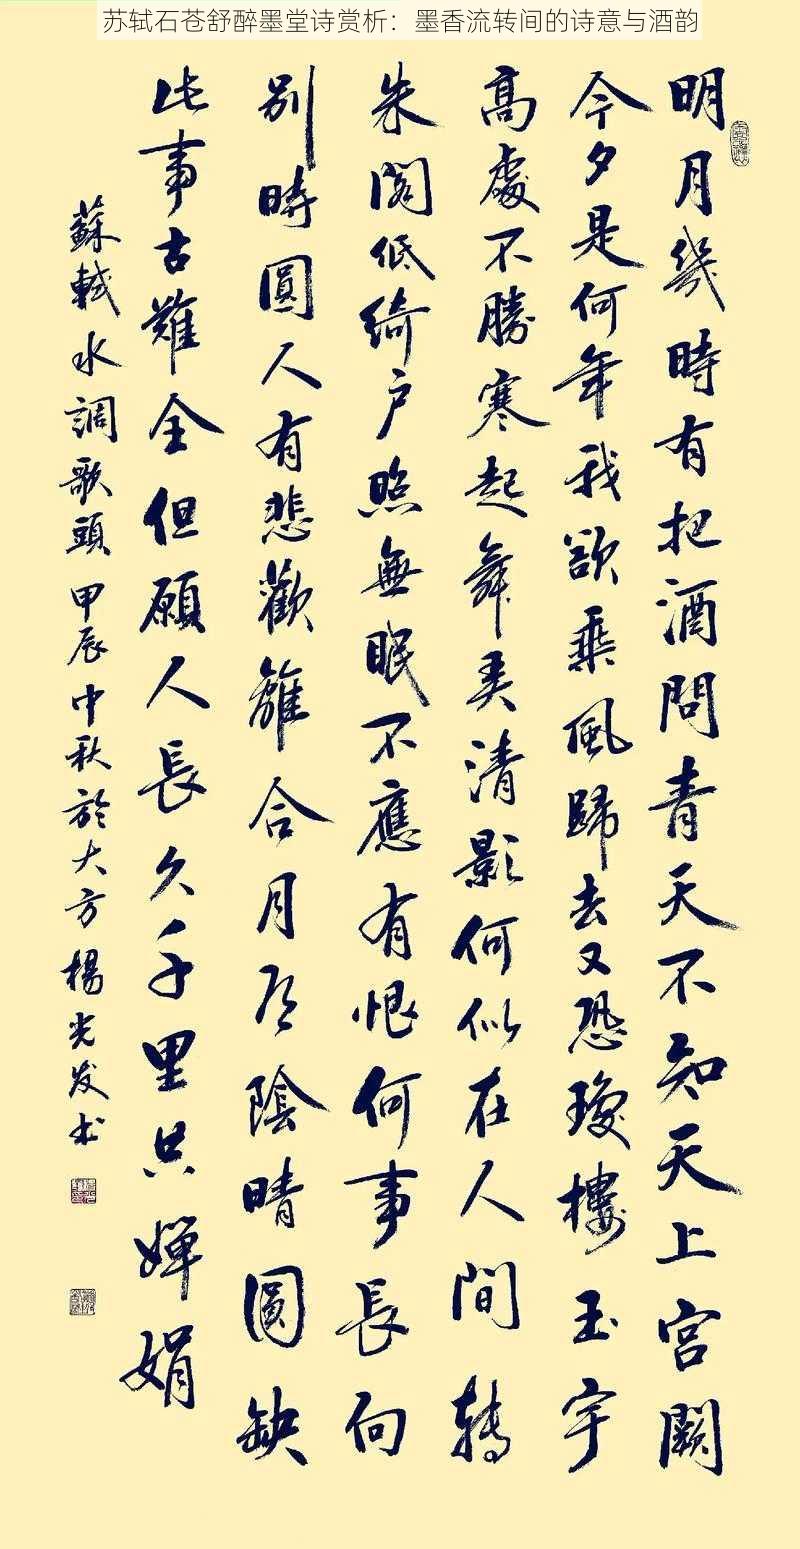 苏轼石苍舒醉墨堂诗赏析：墨香流转间的诗意与酒韵
明月幾時有把酒問青天不知天上宮闕
今夕是何年我欲乘風歸去又恐瓊樓玉宇
高處不勝寒起舞弄清影何似在人間轉
朱閣低綺户照無眠不應有恨何事長向
別時圓人有悲歡離合月有陰晴圓缺
此事古難全但願人長久千里共嬋娟
蘇軾水調歌頭 甲辰中秋於大方楊光发书